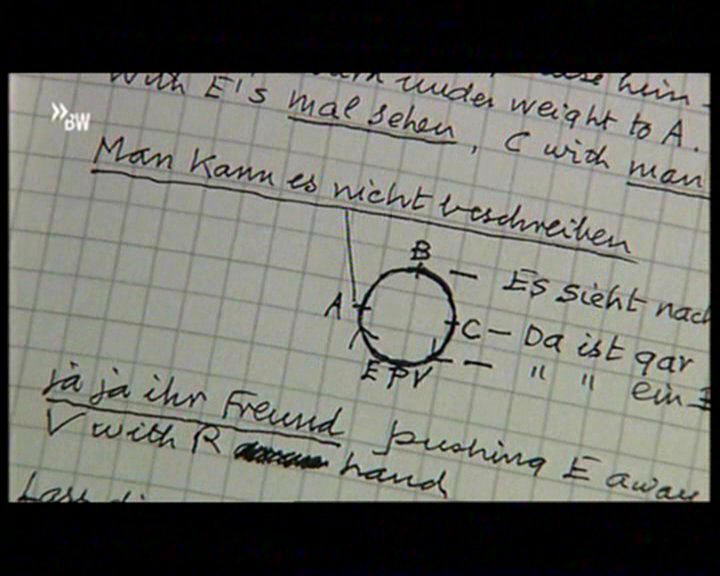 under weight to A.
with E's mal sehen, C with man
»BW
Man kann es nicht beschreiben
B – Es sieht nach
A
C – Da ist gar
E P V – " " ein
ja ja ihr Freund pushing E away
V with R hand